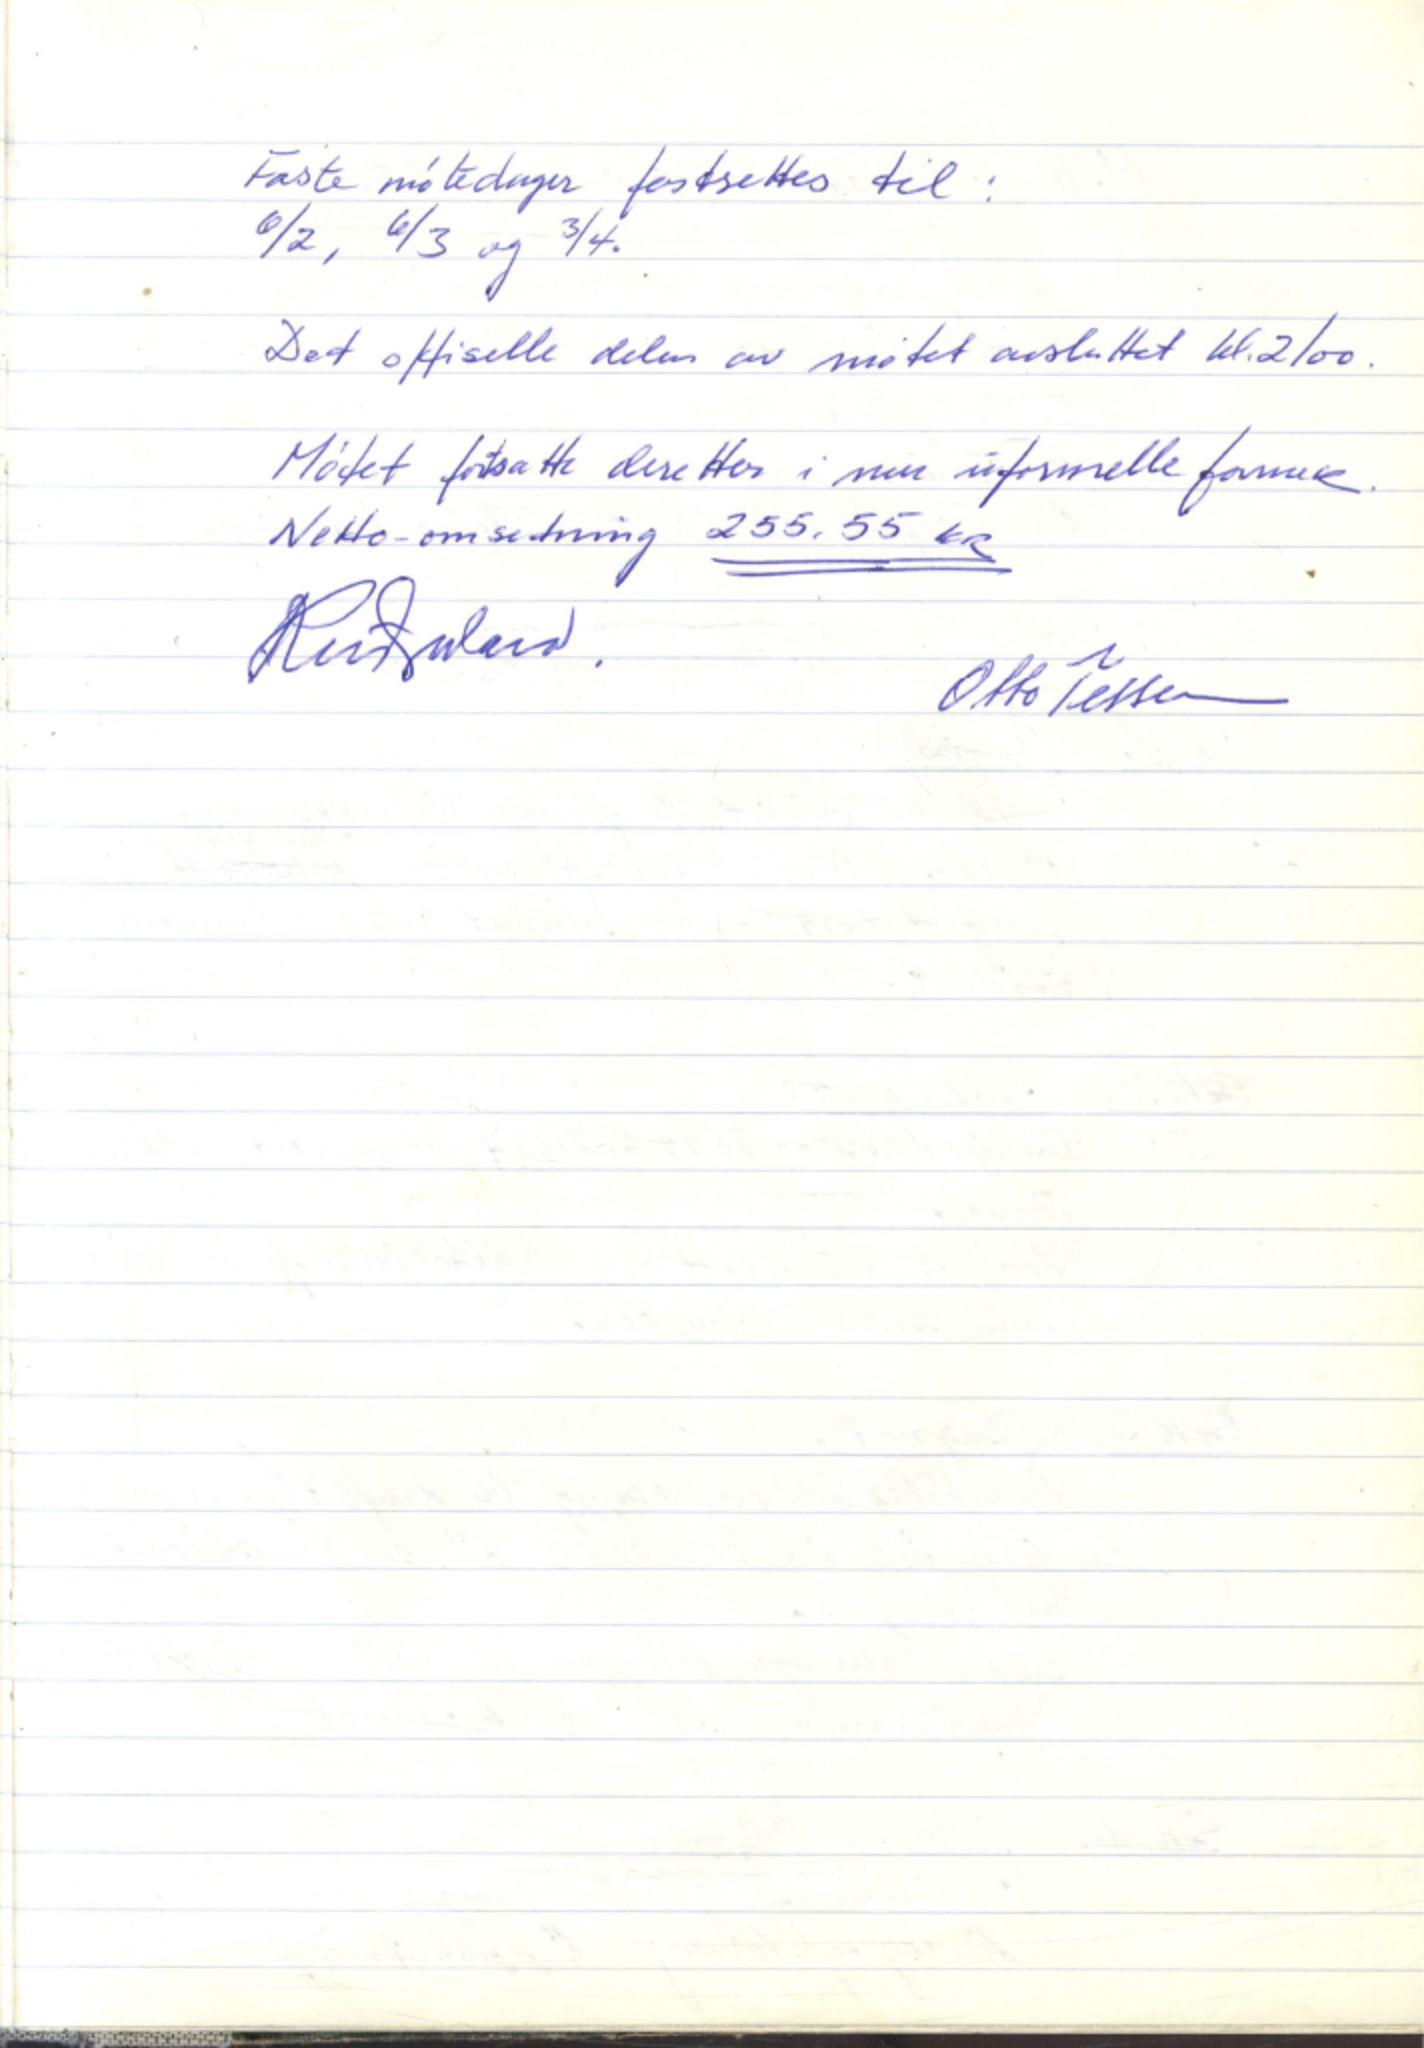 Faste møtedager fastsettes til:
6/2, 6/3 og 3/4.
Det offisielle delen av møtet avsluttet kl. 2100.
Møtet fortsatte deretter i mer uformelle former.
Netto-omsetning 255.55 kr
Otto